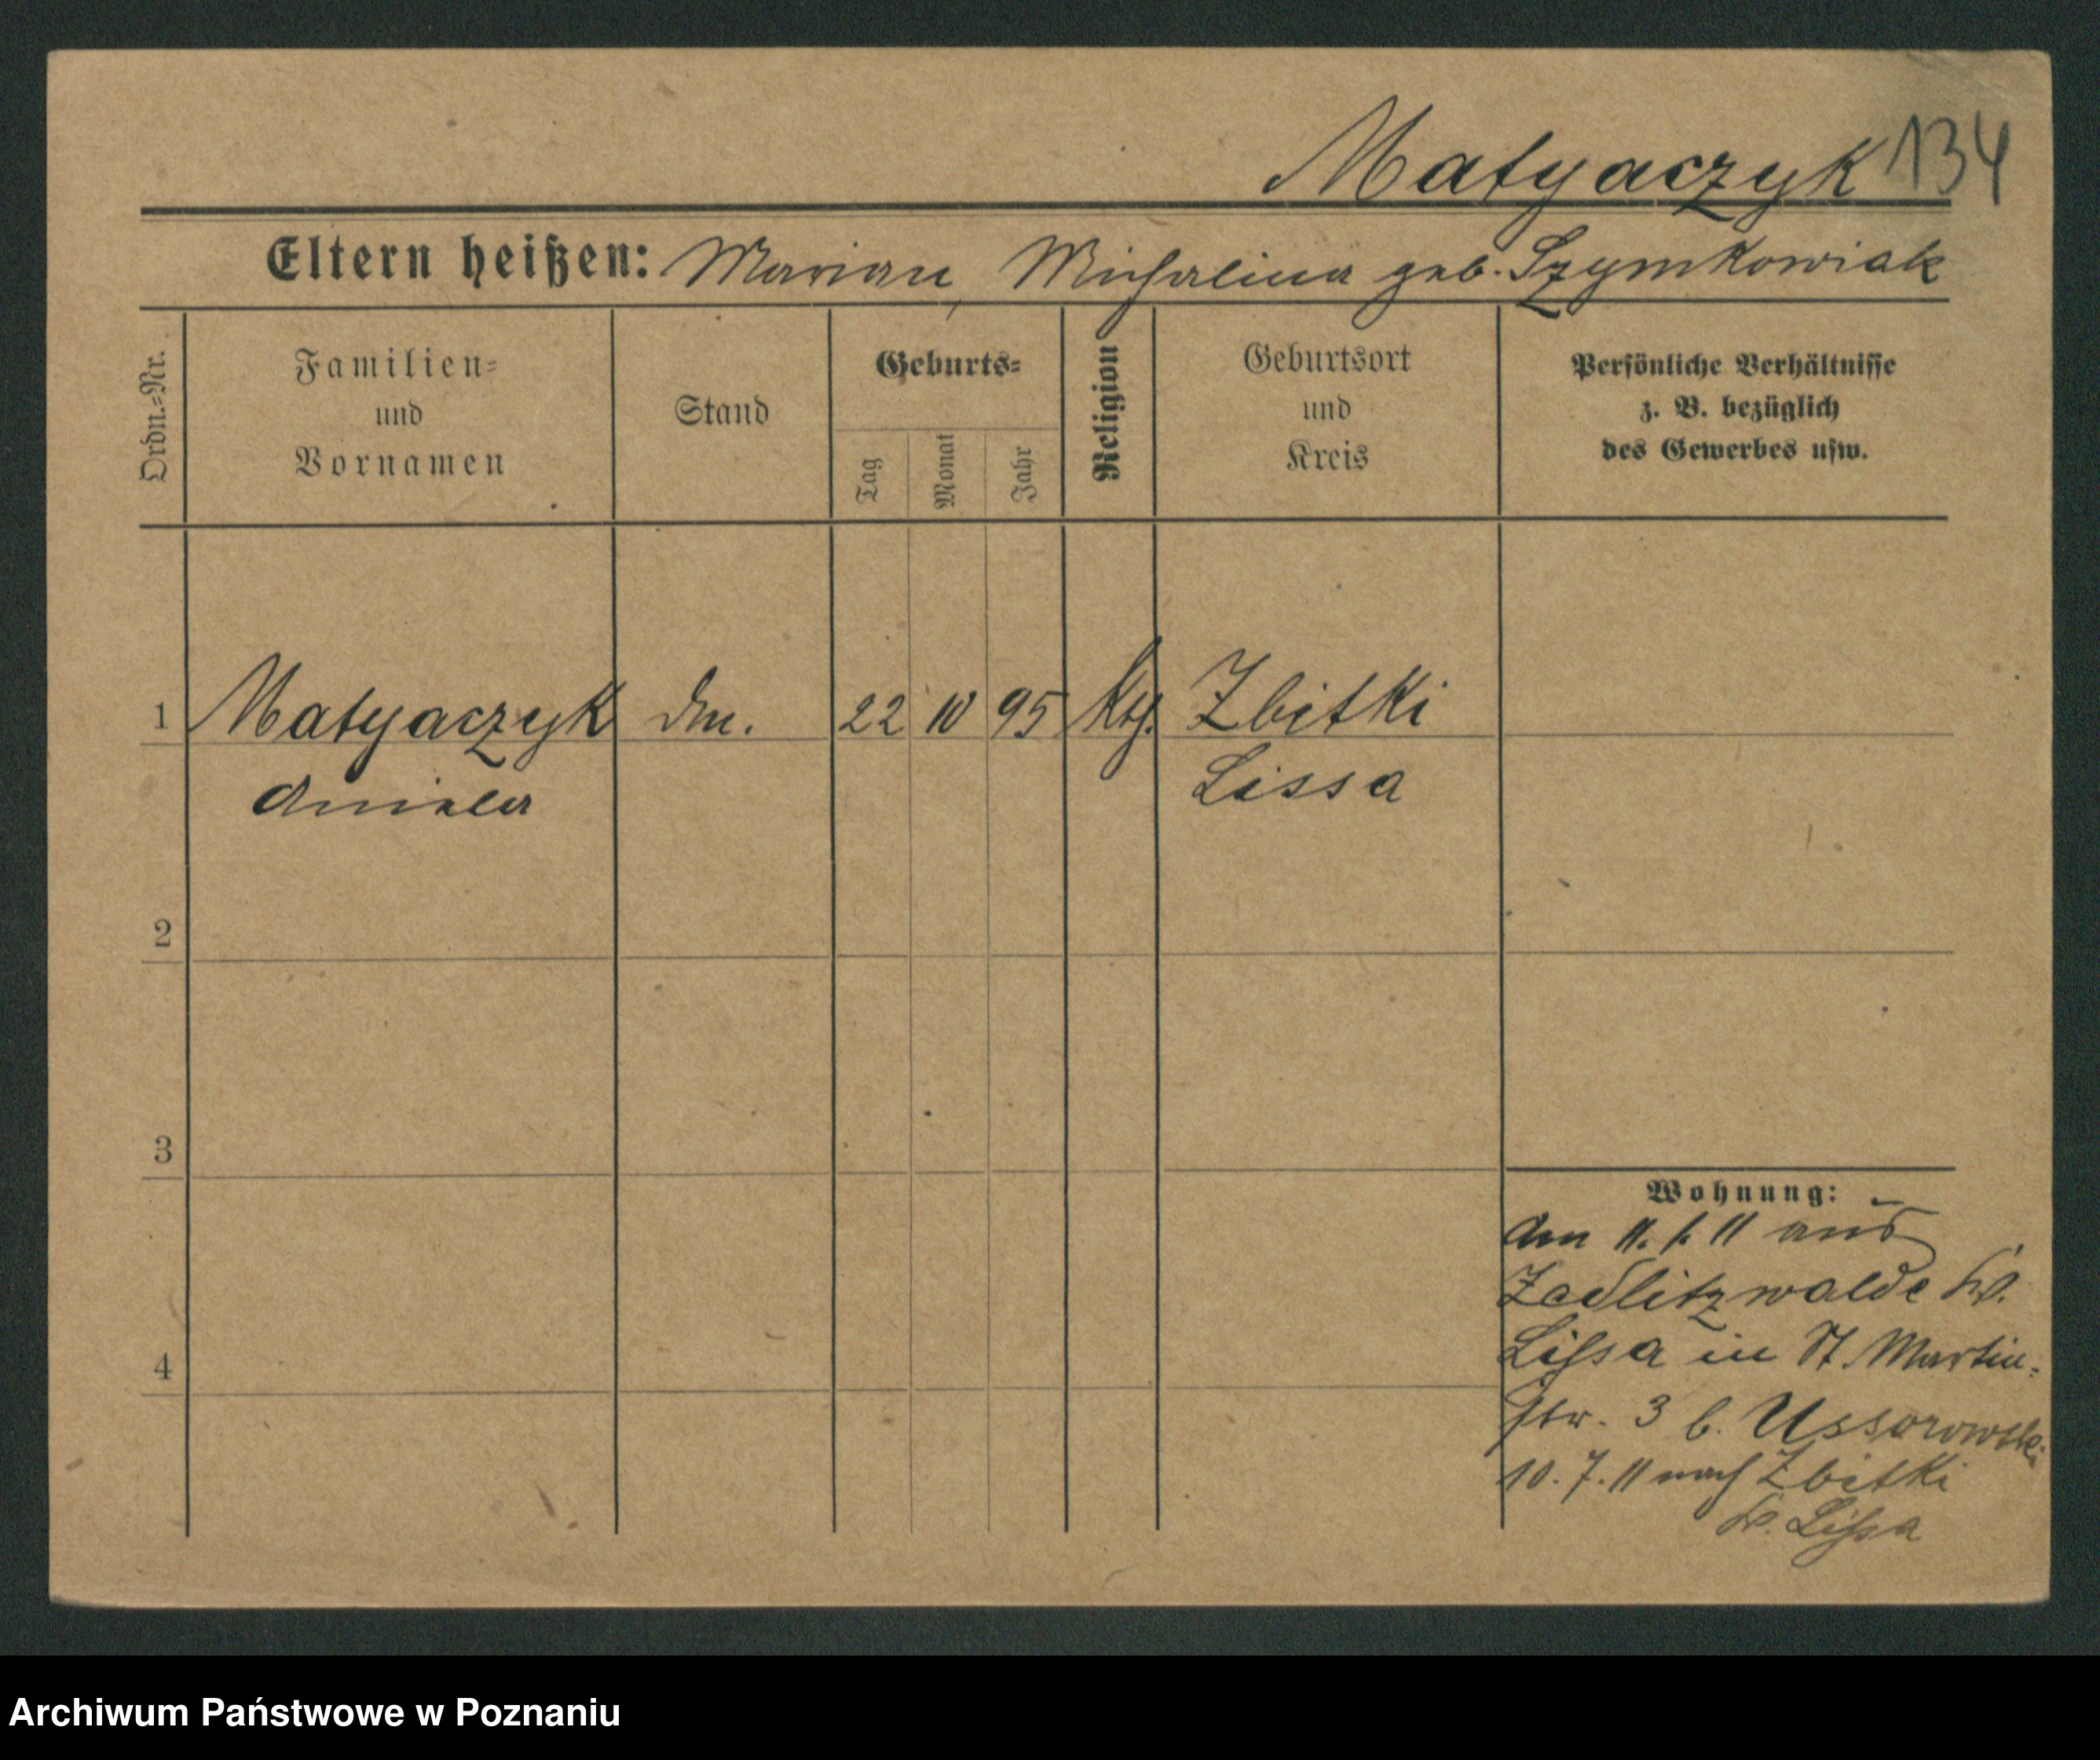 Matyaczyk 134
Eltern heißen: Marian, Michalina geb. Szymkowiak
Ordn.=Nr.
Familien=
und
Vornamen
Stand
Geburts=
Tag
Monat
Jahr
Religion
Geburtsort
und
Kreis
Persönliche Verhältnisse
z. B. bezüglich
des Gewerbes usw.
1 Matyaczyk 22 10 95 kth. Zbitki
Aniela Lissa
2
3
4
Wohnung:
Am 11. 1. 11 aus
Zedlitzwalde Kr.
Lissa in St. Martin-
str. 3 b.
10. 7. 11 nach Zbitki
Kr. Lissa
Archiwum Państwowe w Poznaniu